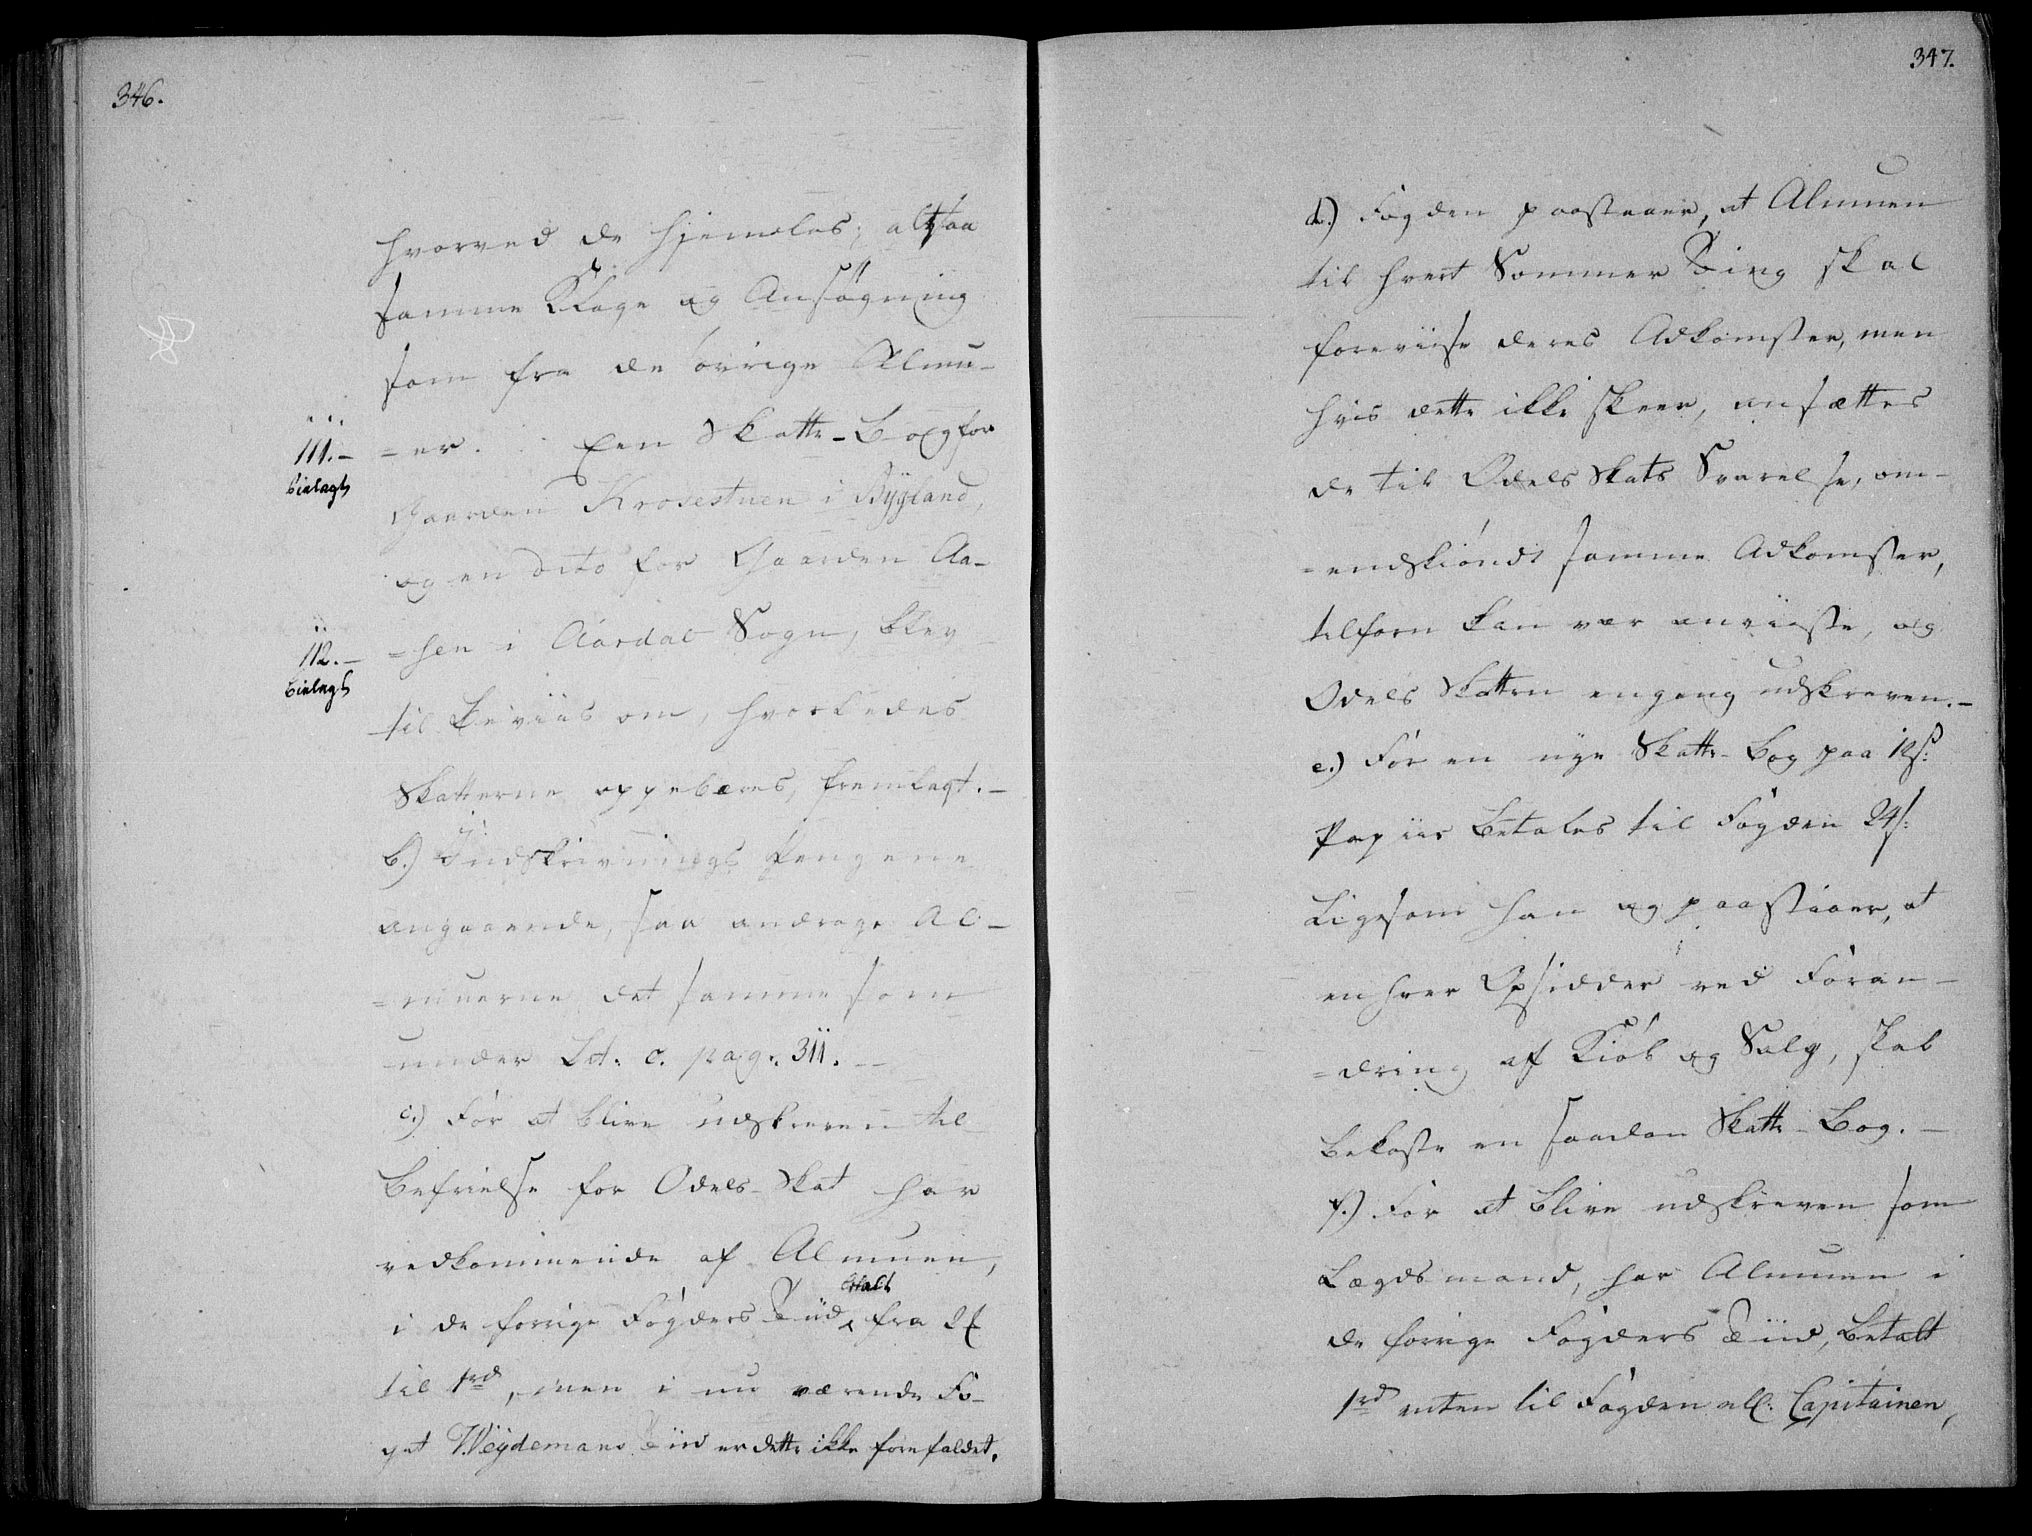 346.
hvorved de hjemles; altsaa
samme Klage og Ansøgning
som fra de øvrige Almu-
111.-
=er. Een Skatte-Bog for
bielagt
Gaarden Krosestuen i Bygland,
og en dito for Gaarden Aa-
=sen i Aardal Sogn, blev
112.-
bielagt
til Beviis om, hvorledes
Skatterne oppebæres, fremlagt.-
b.) Indskrivnings Pengene
angaaende, saa andrage Al-
=muerne det samme som
under Lit. c. pag. 311.-
c.) For at blive udskreven til
Befrielse for Odels-Skat har
vedkommende af Almuen,
betalt
i de forrige Fogders Tiid fra 2
til 1rd, men i nu værende Fo-
get Weydemans Tiid er dette ikke forefaldet.
347.
d.) Fogden paastaaer, at Almuen
til hvert Sommer Ting skal
foreviise deres Adkomster, men
hvis dette ikke skeer, ansættes
de til Odels Skats Svarelse, om-
=endskiøndt samme Adkomster,
tilforn kan vær anviiste, og
Odels Skatten engang udskreven.-
e.) For en nye Skatte-Bog paa 12s:
Papiir Betales til Fogden 24s:
Ligesom han og paastaaer, at
enhver Opsidder ved Foran-
=dring af Kiøb og Salg, skal
bekoste en saadan Skatte-Bog.-
f.) For at blive udskreven som
Lægdsmand, har Almuen i
de forrige Fogders Tiid, Betalt
1rd enten til Fogden ell. Capitainen,